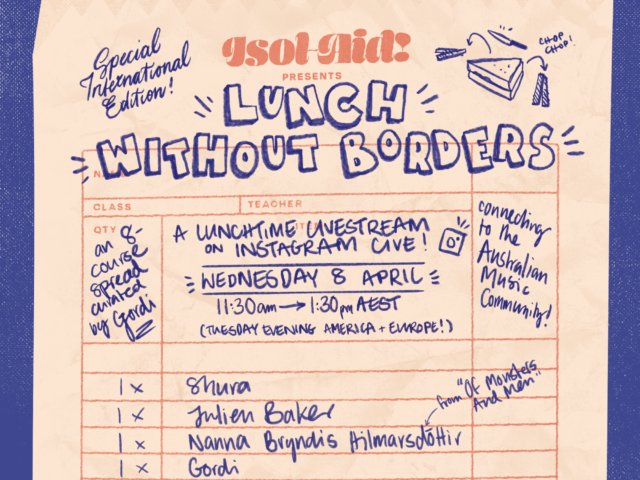 Special
International
Edition!
Isol-Aid!
PRESENTS
CHOP
CHOP!
LUNCH
WITHOUT BORDERS
N
CLASS
TEACHER
QTY
an 8-
course
spread
curated
by Gordi
A LUNCHTIME LIVESTREAM
ON INSTAGRAM LIVE!
WEDNESDAY 8 APRIL
11:30am → 1:30pm AEST
(TUESDAY EVENING AMERICA + EUROPE!)
connecting
to the
Australian
Music
Community!
1 x Shura
1 x Julien Baker
from "Of Monsters
And Men"
1 x Nanna Bryndis Hilmarsdóttir
1 x Gordi